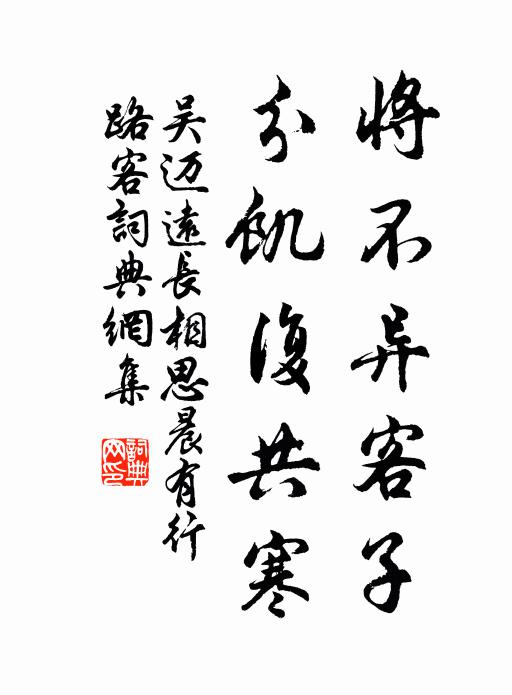 將不异客子
分飢復共寒
吴迈遠長相思晨有行
路客詞典網集
詞典网印